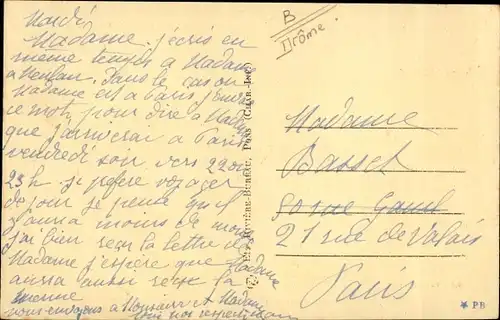 Mardi
Madame. j'écris en
même temps à Madame
dans le cas où
Madame est à Paris j'envoie
ce mot pour dire à Madame
que j'arriverai à Paris
vendredi soir vers 22 ou
23h. je préfère voyager
de jour je pense qu'il
y aura moins de monde
j'ai bien reçu la lettre de
Madame j'espère que Madame
aura aussi reçu la
mienne
nous envoyons à Monsieur et Madame
tous nos respects
B
Drôme.
RIVIÈRE-BUREAU, PONS (CHAR.-INF.)
Madame
Basset
50 rue
21 rue de Valois
Paris
PB